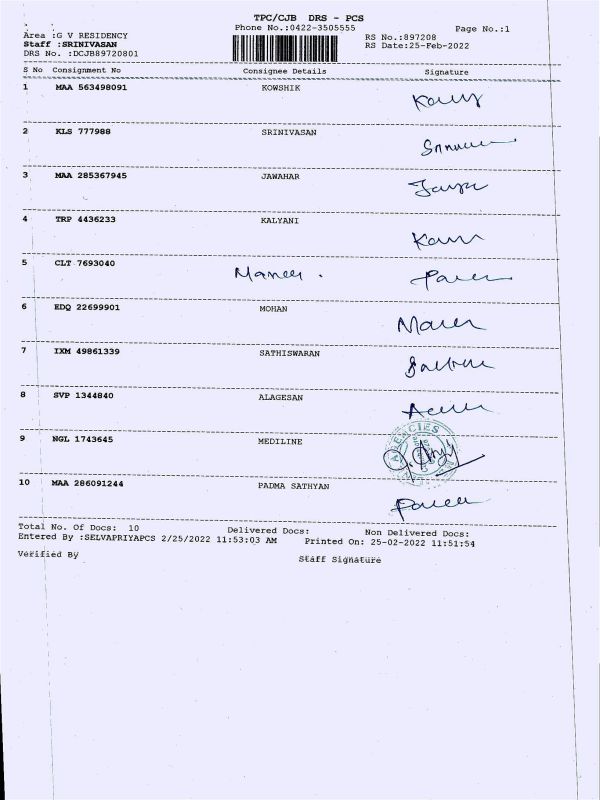 TPC/CJB DRS - PCS
Phone No.:0422-3505555 Page No.:1
Area :G V RESIDENCY RS No.:897208
Staff :SRINIVASAN RS Date:25-Feb-2022
DRS No. :DCJB89720801
S No Consignment No Consignee Details Signature
1 MAA 563498091 KOWSHIK
2 KLS 777988 SRINIVASAN
3 MAA 285367945 JAWAHAR
4 TRP 4436233 KALYANI
5 CLT 7693040
6 EDQ 22699901 MOHAN
7 IXM 49861339 SATHISWARAN
8 SVP 1344840 ALAGESAN
AGENCIES
9 NGL 1743645 MEDILINE
10 MAA 286091244 PADMA SATHYAN
Total No. Of Docs: 10 Delivered Docs: Non Delivered Docs:
Entered By :SELVAPRIYAPCS 2/25/2022 11:53:03 AM Printed On: 25-02-2022 11:51:54
Verified By Staff Signature